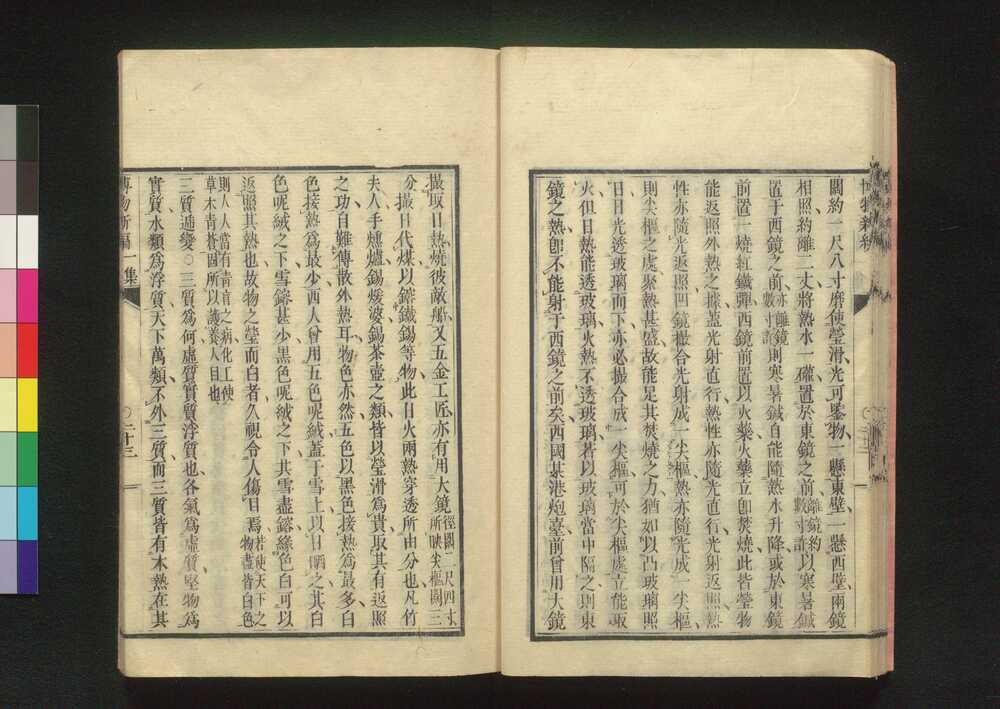 闊約一尺八寸磨使瑩滑光可鑒物一懸東壁一懸西壁兩鏡
相照約離二丈將熱水一礶置於東鏡之前離鏡約數寸許以寒暑鍼
置于西鏡之前亦離鏡數寸許則寒暑鍼自能隨熱水升降或於東鏡
前置一燒紅鐵彈西鏡前置以火藥火藥立卽焚燒此皆瑩物
能返照外熱之據蓋光射直行熱性亦隨光直行光射返照熱
性亦隨光返照凹鏡撮合光射成一尖樞熱亦隨光成一尖樞
則尖樞之處聚熱甚盛故能足其焚燒之力猶如以凸玻璃照
日日光透玻璃而下亦必撮合成一尖樞可於尖樞處立能取
火但日熱能透玻璃火熱不透玻璃若以玻璃當中隔之則東
鏡之熱卽不能射于西鏡之前矣西國某港炮臺前曾用大鏡
撮取日熱燒彼敵船又五金工匠亦有用大鏡徑闊二尺四寸所映尖樞闊三
分撮日代煤以鎔鐵錫等物此日火兩熱穿透所由分也凡竹
夫人手爐爐錫煖婆錫茶壺之類皆以瑩滑爲貴取其有返照
之功自難傳散外熱耳物色亦然五色以黑色接熱爲最多白
色接熱爲最少西人曾用五色呢絨蓋于雪上以日晒之其白
色呢絨之下雪鎔甚少黑色呢絨之下其雪盡鎔緣色白可以
返照其熱也故物之瑩而白者久視令人傷目焉若使天下之物盡皆白色
則人人當有青盲之病化工使草木青蒼固所以護養人目也
三質遞變○三質爲何虛質實質浮質也各氣爲虛質堅物爲
實質水類爲浮質天下萬類不外三質而三質皆有本熱在其
博物新編一集
二十三